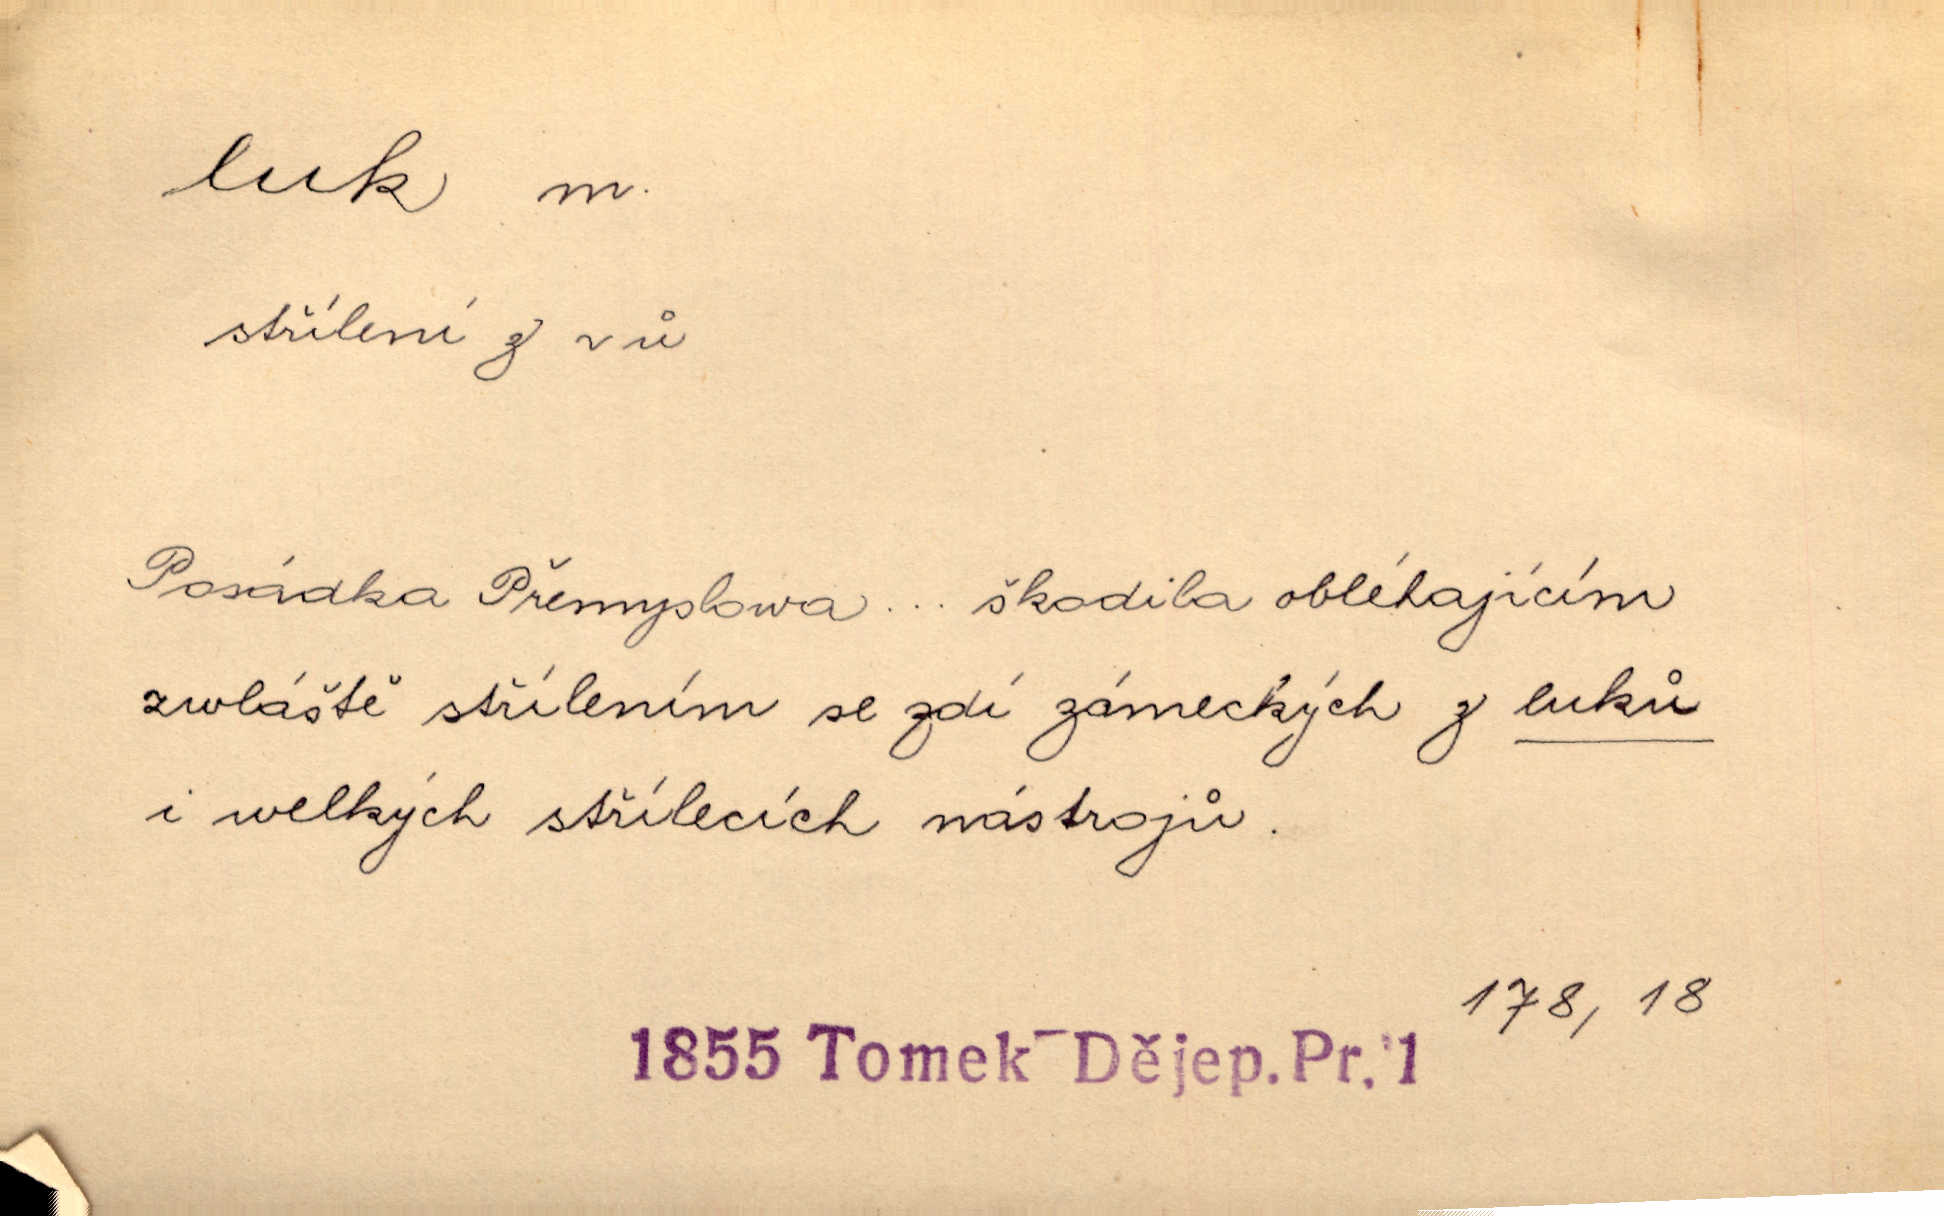 luk m.
střílení z ~ů
Posádka Přemyslowa ... škodila obléhajícím
zwláště střílením se zdí zámeckých z luků
i welkých střílecích nástrojů.
178, 18
1855 Tomek–Dějep. Pr. 1